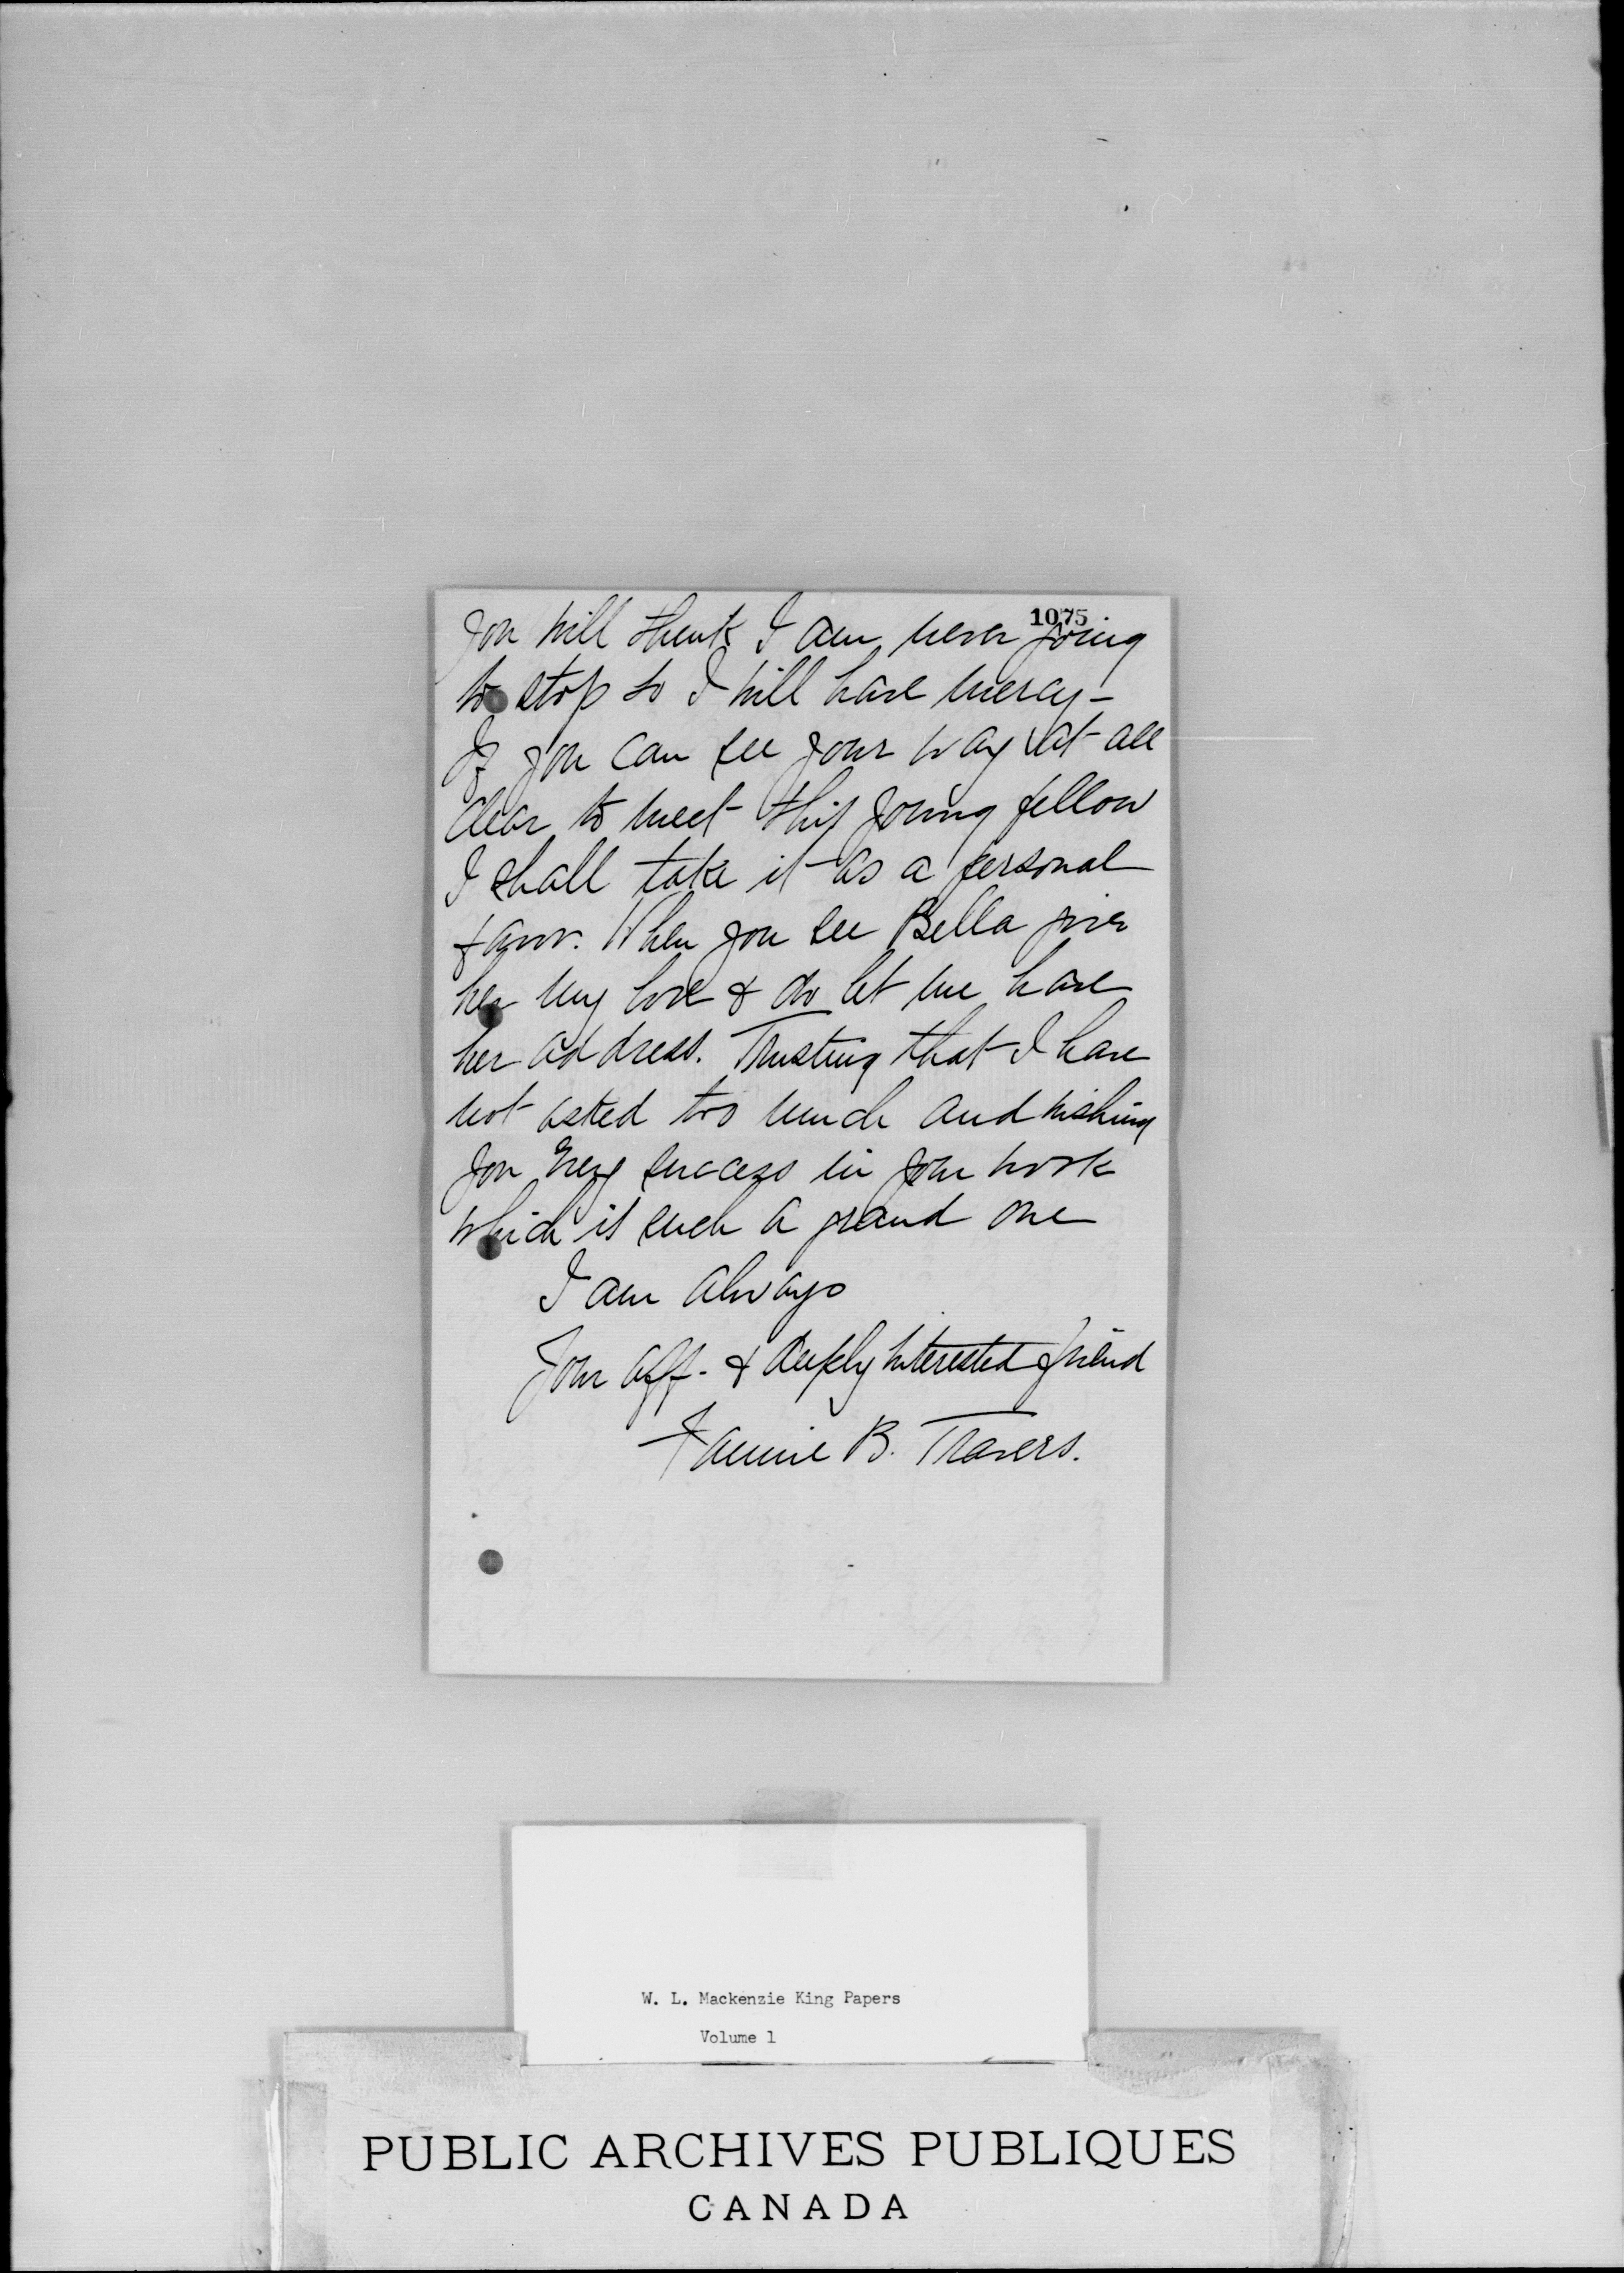 1075
you will think I am never going
to stop so I will have mercy –
If you can see your way at all
clear to meet this young fellow
I shall take it as a personal
favor. When you see Bella give
her my love & do let me have
her address. Trusting that I have
not asked too much and wishing
you every success in your work
which is such a grand one
I am always
Your aff. & deeply interested friend
Fannie B. Travers.
W. L. Mackenzie King Papers
Volume 1
PUBLIC ARCHIVES PUBLIQUES
CANADA